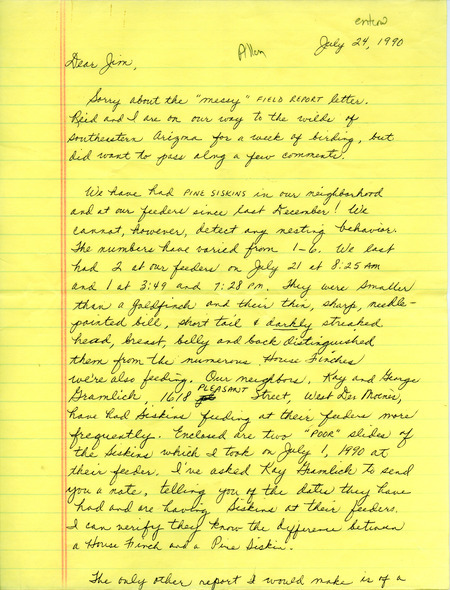 enters
Allen
July 24, 1990
Dear Jim,
Sorry about the "messy" FIELD REPORT letter.
Reid and I are on our way to the wilds of
southeastern Arizona for a week of birding, but
did want to pass along a few comments.
We have had PINE SISKINS in our neighborhood
and at our feeders since last December! We
cannot, however, detect any nesting behavior.
The numbers have varied from 1-6. We last
had 2 at our feeders on July 21 at 8:25 AM
and 1 at 3:49 and 7:28 PM. They were smaller
than a goldfinch and their thin, sharp, needle-
pointed bill, short tail & darkly streaked
head, breast, belly and back distinguished
them from the numerous House Finches
we're also feeding. Our neighbors, Kay and George
Gramlich, 1618 PLEASANT Street, West Des Moines,
have had Siskins feeding at their feeders more
frequently. Enclosed are two "POOR" slides of
the Siskins which I took on July 1, 1990 at
their feeder. I've asked Kay Gramlich to send
you a note, telling you of the dates they have
had and are having Siskins at their feeders.
I can verify they know the difference between
a House Finch and a Pine Siskin.
The only other report I would make is of a